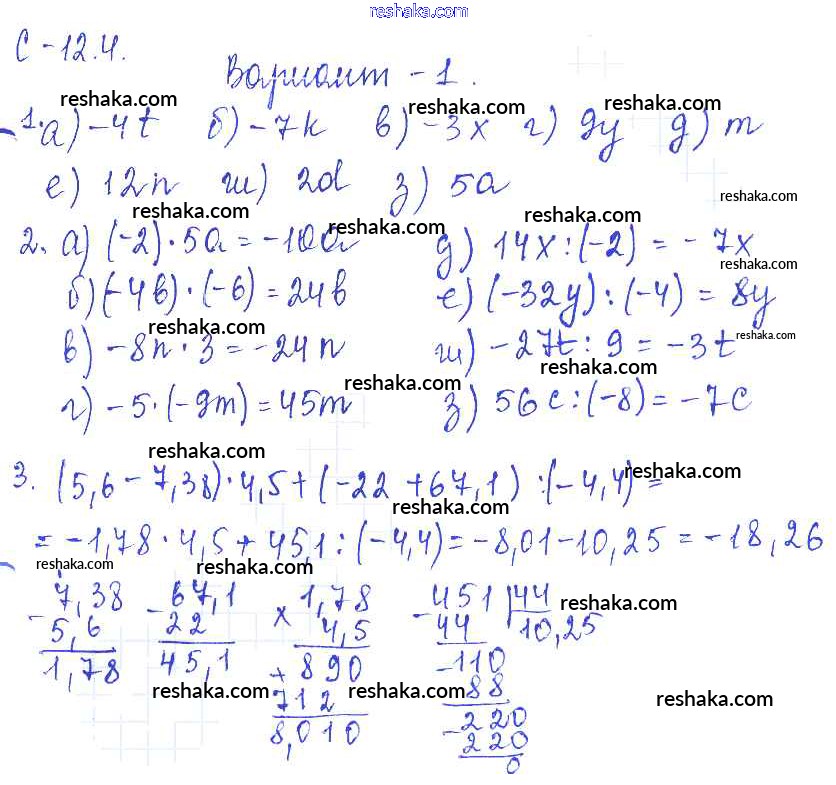 reshaka.com
С-12.4.
Вариант -1.
reshaka.com reshaka.com reshaka.com
1. а) -4t б) -7k в) -3x г) 9y д) m
е) 12n ж) 2d з) 5a
reshaka.com reshaka.com reshaka.com
2. а) (-2)·5a = -10a д) 14x:(-2) = -7x
reshaka.com reshaka.com
б) (-4b)·(-6) = 24b е) (-32y):(-4) = 8y
reshaka.com reshaka.com
в) -8n·3 = -24n ж) -27t:9 = -3t
reshaka.com reshaka.com
г) -5·(-9m) = 45m з) 56c:(-8) = -7c
reshaka.com reshaka.com
3. (5,6-7,38)·4,5+(-22+67,1):(-4,4)=
reshaka.com
= -1,78·4,5+45,1:(-4,4) = -8,01-10,25 = -18,26
reshaka.com reshaka.com reshaka.com
7,38 67,1 1,78 451 44
- 5,6 - 22 × 4,5 - 44 10,25
1,78 45,1 + 890 -110
reshaka.com reshaka.com reshaka.com
712 88
8,010 -220
220
0